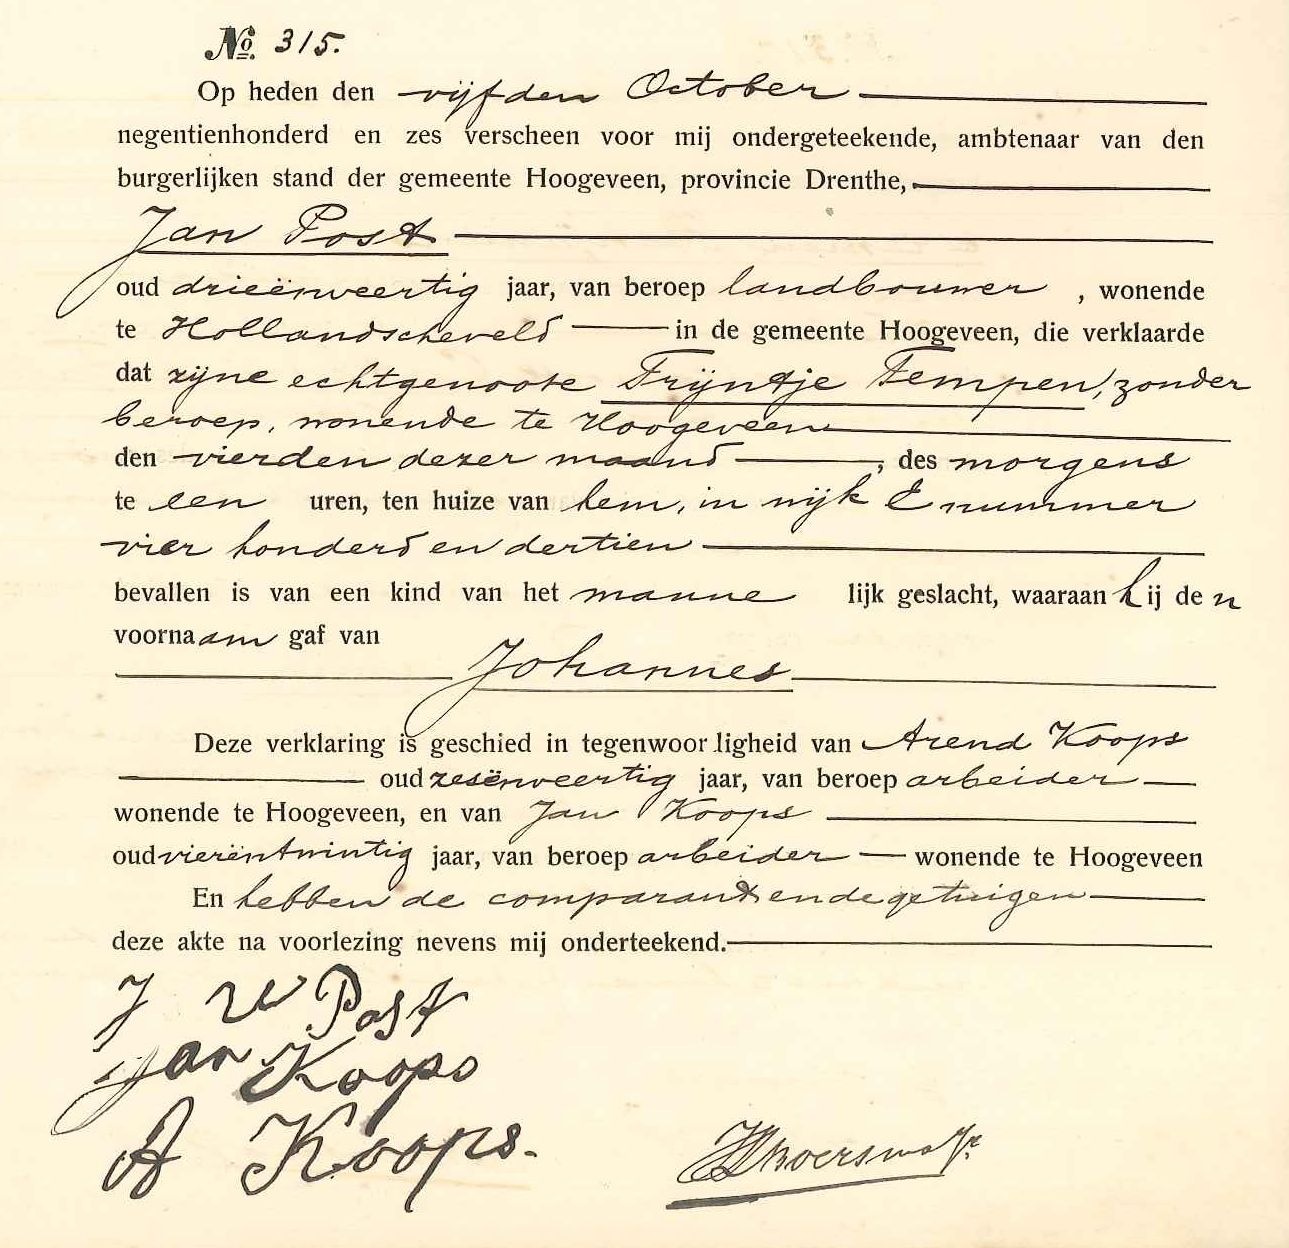 No. 315.
Op heden den vijfden October
negentienhonderd en zes verscheen voor mij ondergeteekende, ambtenaar van den
burgerlijken stand der gemeente Hoogeveen, provincie Drenthe,
Jan Post
oud drieënveertig jaar, van beroep landbouwer, wonende
te Hollandscheveld in de gemeente Hoogeveen, die verklaarde
dat zijne echtgenoote Trijntje Tempen, zonder
beroep, wonende te Hoogeveen
den vierden dezer maand, des morgens
te een uren, ten huize van hem, in wijk E nummer
vier honderd en dertien
bevallen is van een kind van het mannelijk geslacht, waaraan hij den
voornaam gaf van
Johannes
Deze verklaring is geschied in tegenwoordigheid van Arend Koops
oud zesënveertig jaar, van beroep arbeider
wonende te Hoogeveen, en van Jan Koops
oud vierëntwintig jaar, van beroep arbeider wonende te Hoogeveen
En hebben de comparant en de getuigen
deze akte na voorlezing nevens mij onderteekend.
J W Post
Jan Koops
A Koops.